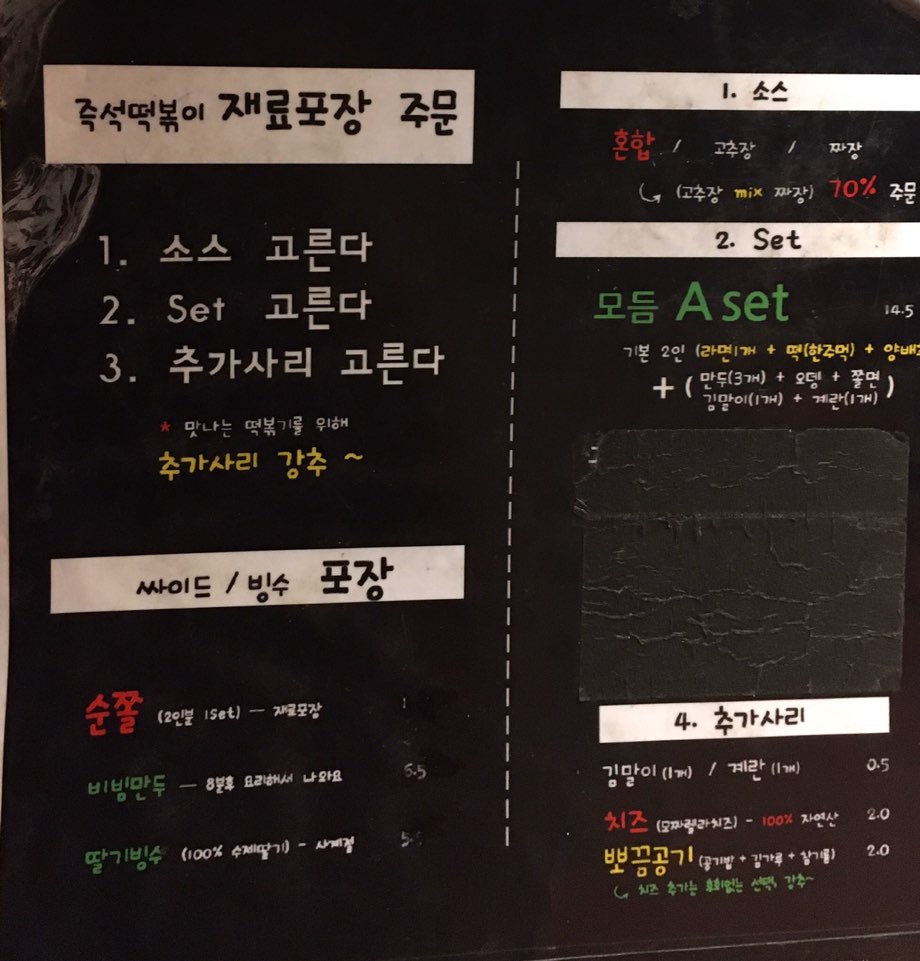 즉석떡볶이 재료포장 주문
1. 소스 고른다
2. Set 고른다
3. 추가사리 고른다
* 맛나는 떡볶기를 위해
추가사리 강추 ~
싸이드 / 빙수 포장
순쫄 (2인분 1Set) — 재료포장
비빔만두 — 8분후 요리해서 나와요 5.5
딸기빙수 (100% 수제딸기) - 사계절
1. 소스
혼합 / 고추장 / 짜장
(고추장 mix 짜장) 70% 주문
2. Set
모듬 A set 14.5
기본 2인 (라면1개 + 떡(한주먹) + 양배
+ ( 만두(3개) + 오뎅 + 쫄면
김말이(1개) + 계란(1개) )
4. 추가사리
김말이 (1개) / 계란 (1개) 0.5
치즈 (모짜렐라치즈) - 100% 자연산 2.0
뽀끔공기 (공기밥 + 김가루 + 참기름) 2.0
치즈 추가는 후회없는 선택, 강추~